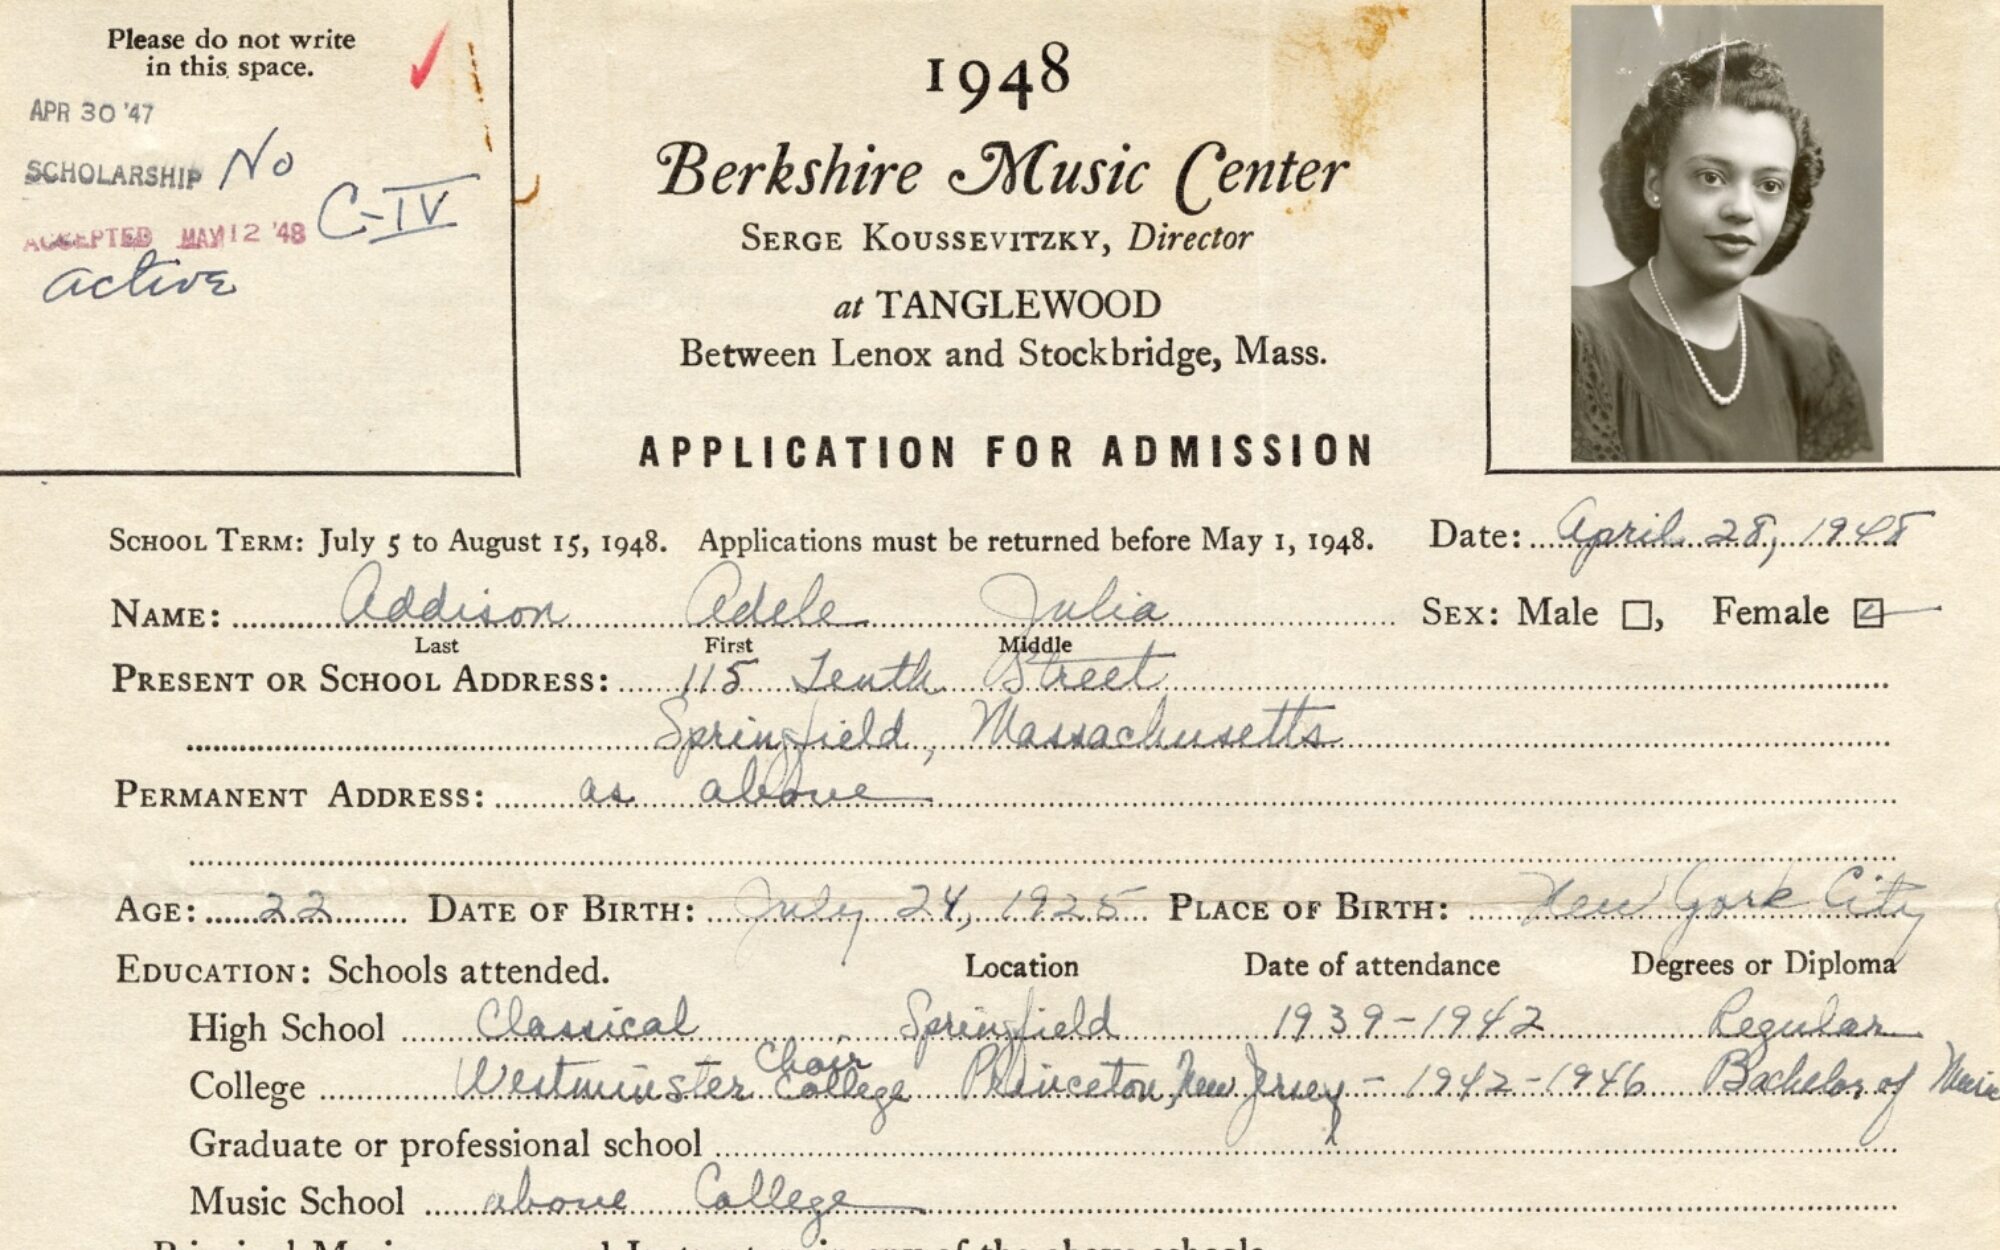 Please do not write
in this space.
APR 30 '47
SCHOLARSHIP No
C-IV
ACCEPTED MAY 12 '48
active
1948
Berkshire Music Center
SERGE KOUSSEVITZKY, Director
at TANGLEWOOD
Between Lenox and Stockbridge, Mass.
APPLICATION FOR ADMISSION
SCHOOL TERM: July 5 to August 15, 1948. Applications must be returned before May 1, 1948. Date: April 28, 1948
NAME: Addison Adele Julia SEX: Male ☐, Female ☑
Last First Middle
PRESENT OR SCHOOL ADDRESS: 115 Tenth Street
Springfield, Massachusetts
PERMANENT ADDRESS: as above
AGE: 22 DATE OF BIRTH: July 24, 1925 PLACE OF BIRTH: New York City
EDUCATION: Schools attended. Location Date of attendance Degrees or Diploma
High School Classical Springfield 1939-1942 Regular
College Westminster Choir College Princeton, New Jersey - 1942-1946 Bachelor of Music
Graduate or professional school
Music School above College
in any of the above schools